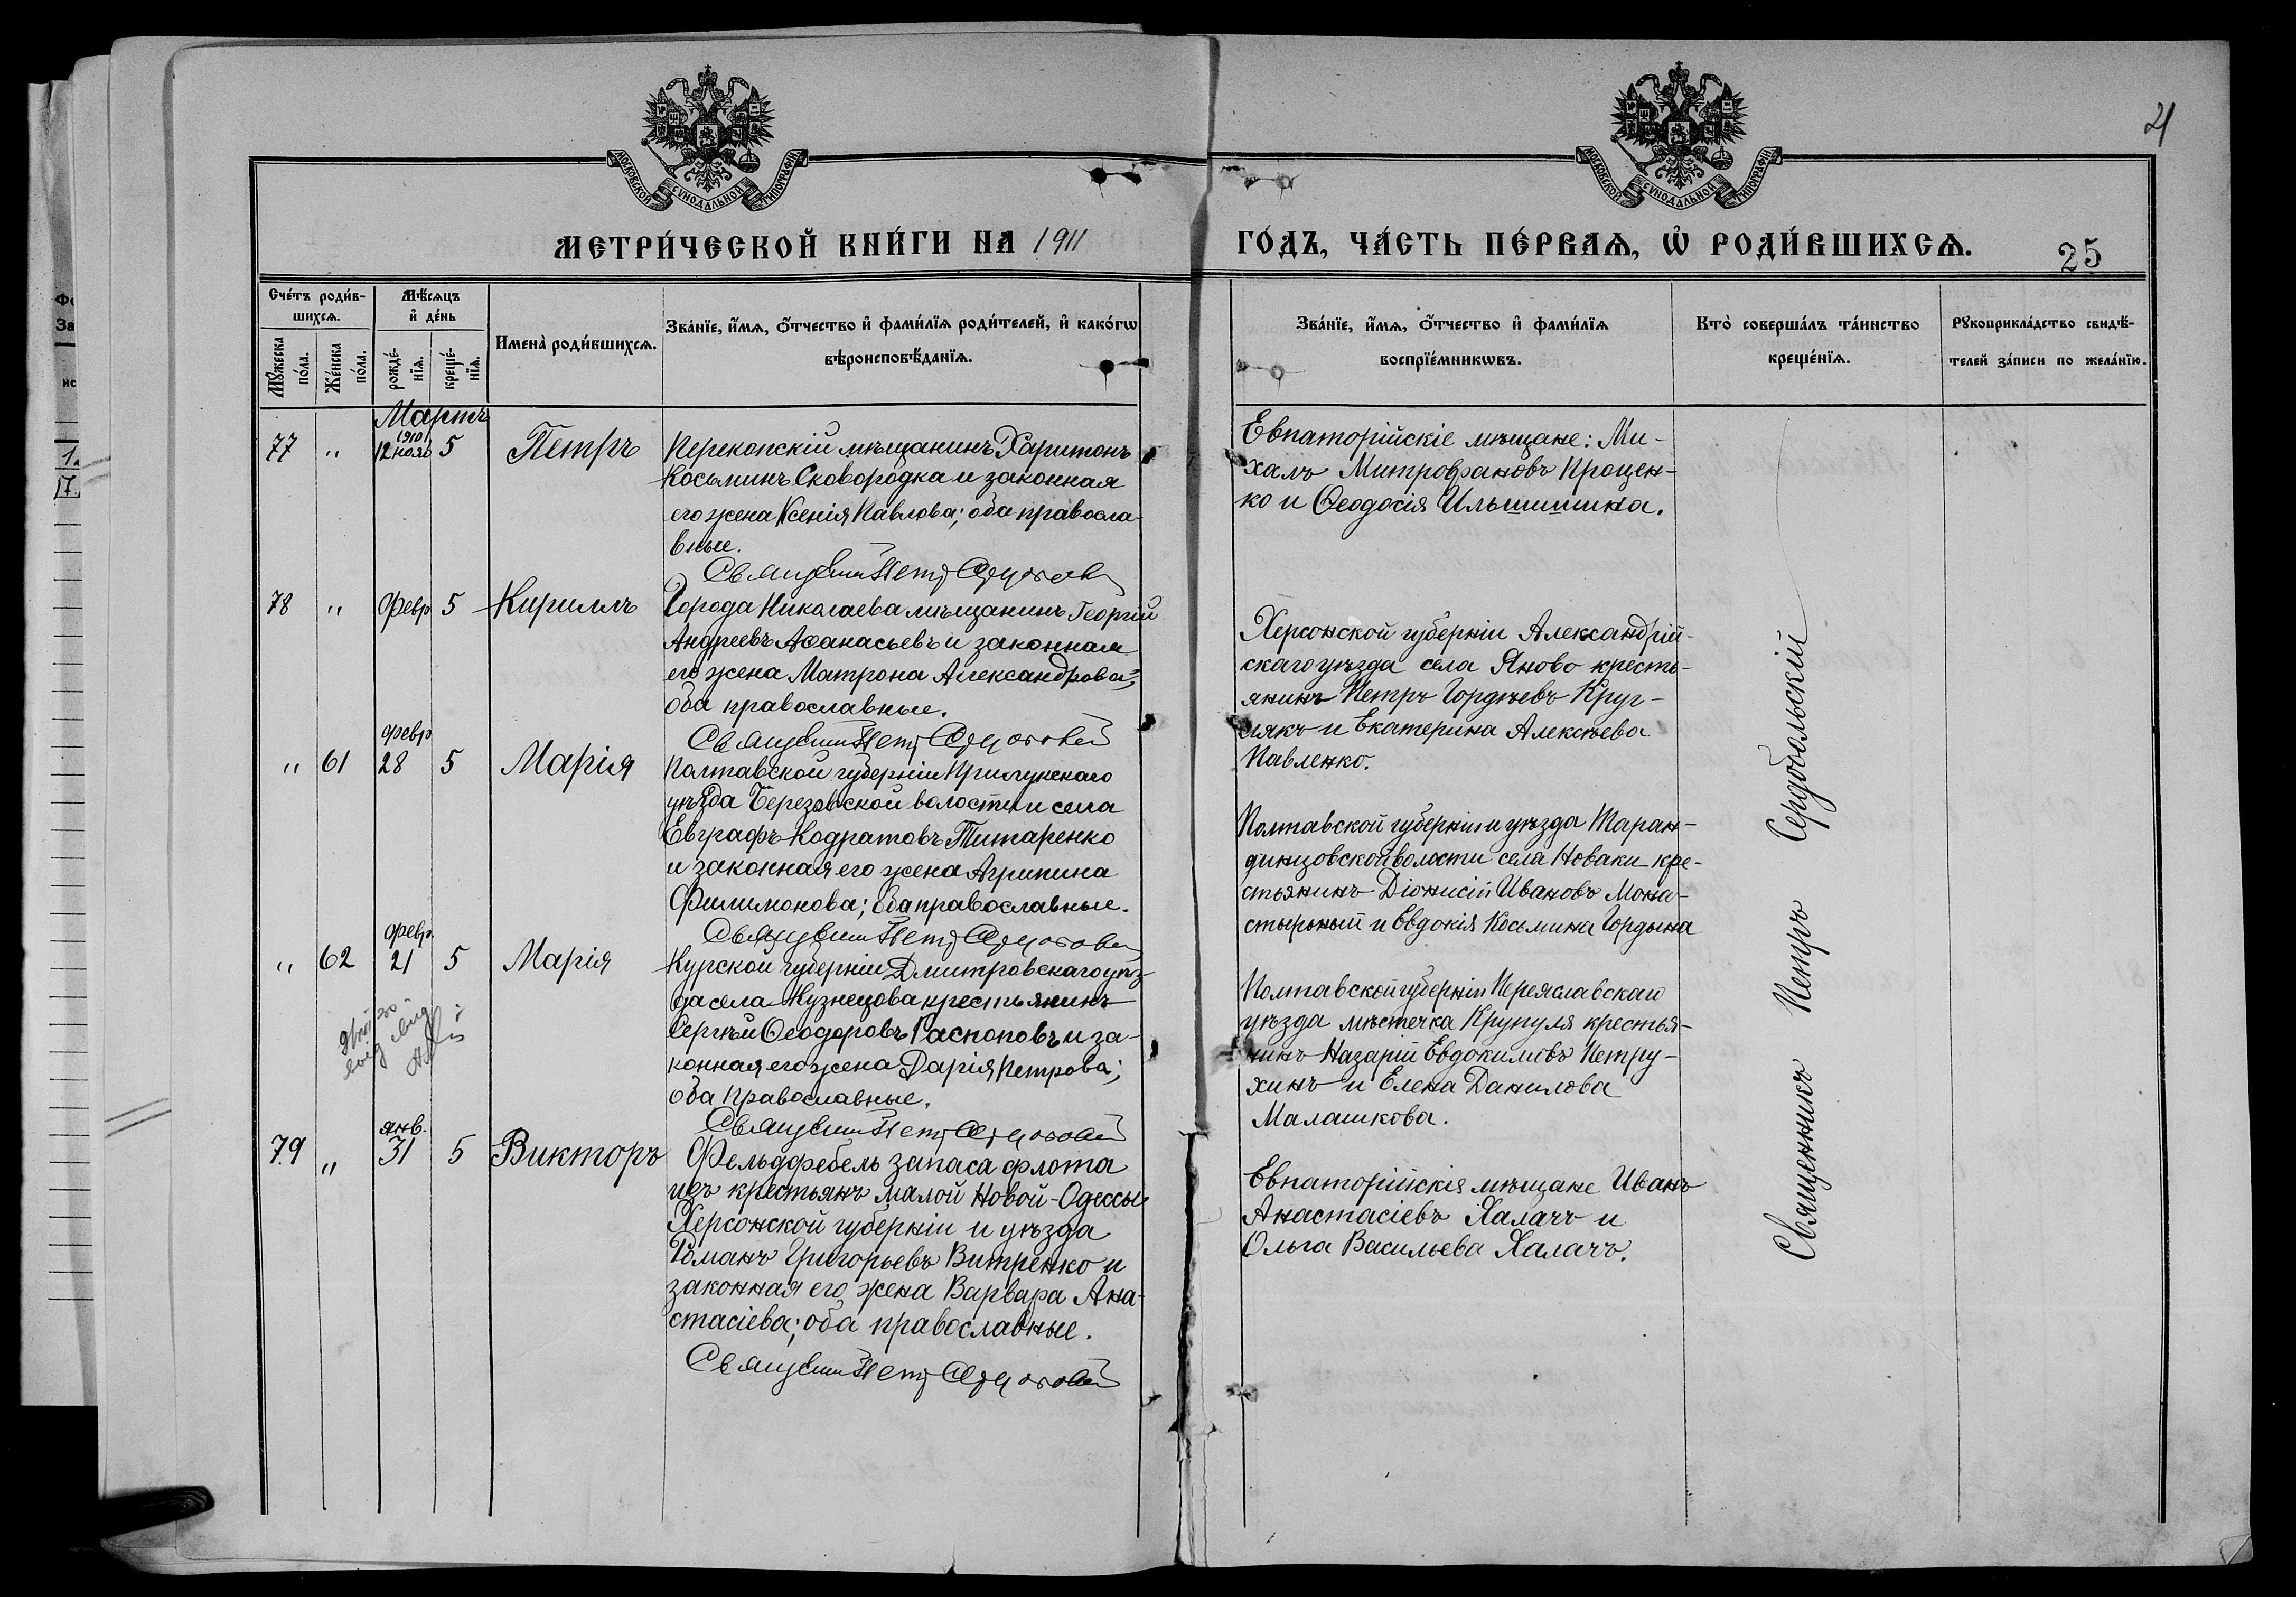 МОСКОВСКОЙ СУНОДАЛЬНОЙ ТИПОГРАФІИ
МОСКОВСКОЙ СУНОДАЛЬНОЙ ТИПОГРАФІИ
21
МЕТРИ́ЧЕСКОЙ КНИ́ГИ НА 1911
ГО́ДЪ, ЧА́СТЬ ПЕ́РВАѦ, Ѡ РОДИ́ВШИХСѦ.
25
Сче́тъ роди́в-
шихсѧ.
Мꙋ́жеска по́ла.
Же́нска по́ла.
Мѣ́сѧцъ
и де́нь
рожде́-
нїѧ.
креще́-
нїѧ.
Имена̀ роди́вшихсѧ.
Зва́нїе, и́мѧ, о́тчество и фами́лїѧ роди́телей, и како́гѡ
вѣроисповѣ́данїѧ.
Зва́нїе, и́мѧ, о́тчество и фами́лїѧ
воспрїе́мникѡвъ.
Кто̀ соверша́лъ та́инство
креще́нїѧ.
Рꙋкоприкла́дство свидѣ́-
телей за́писи по жела́нїю.
Мартъ
77 " 12 1910 нояб 5 Петръ
Перекопскій мѣщанинъ Харитонъ
Косьминъ Сковородка и законная
его жена Ксенія Павлова; оба правосла-
вные.
Священникъ Петръ
Евпаторійскіе мѣщане: Ми-
халъ Митрофановъ Процен-
ко и Ѳеодосія Ильшишина.
78 " Февр 5 Кириллъ
Города Николаева мѣщанинъ Георгій
Андреевъ Аѳанасьевъ и законная
его жена Матрона Александрова;
оба православные.
Священникъ Петръ
Херсонской губерніи Александрій-
скаго уѣзда села Яново кресть-
янинъ Петръ Гордѣевъ Круг-
лякъ и Екатерина Алексѣева
Павленко.
" 61 февр 28 5 Марія
Полтавской губерніи Прилукскаго
уѣзда Березовской волости и села
Евграфъ Кодратовъ Титаренко
и законная его жена Агрипина
Филимонова; оба православные.
Священникъ Петръ
Полтавской губерніи и уѣзда Таран-
динцовской волости села Новаки кре-
стьянинъ Діонисій Ивановъ Мона-
стырный и Евдокія Косьмина Гордына
" 62 февр. 21 5 Марія
Курской губерніи Дмитровскаго уѣз-
да села Кузнецова крестьянинъ
Сергѣй Ѳеодоровъ Распоповъ и за-
конная его жена Дарія Петрова;
оба православные.
Священникъ Петръ
Полтавской губерніи Переяславскаго
уѣзда мѣстечка Крупуля крестья-
нинъ Назарій Евдокимовъ Петру-
хинъ и Елена Данилова
Малашкова.
79 " янв. 31 5 Викторъ
Фельдфебель запаса флота
изъ крестьянъ малой Новой-Одессы
Херсонской губерніи и уѣзда
Романъ Григорьевъ Витренко и
законная его жена Варвара Ана-
стасіева; оба православные.
Священникъ Петръ
Евпаторійскія мѣщане Иванъ
Анастасіевъ Халачъ и
Ольга Васильева Халачъ.
Священникъ Петръ Сердобольскій